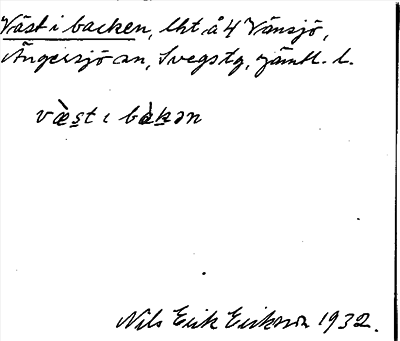 Väst i backen, lht å 4 Vänsjö,
Ängersjö an, Svegs tg, Jämtl. l.
væ̀st ɩ bàkən
Nils Erik Erikson 1932.